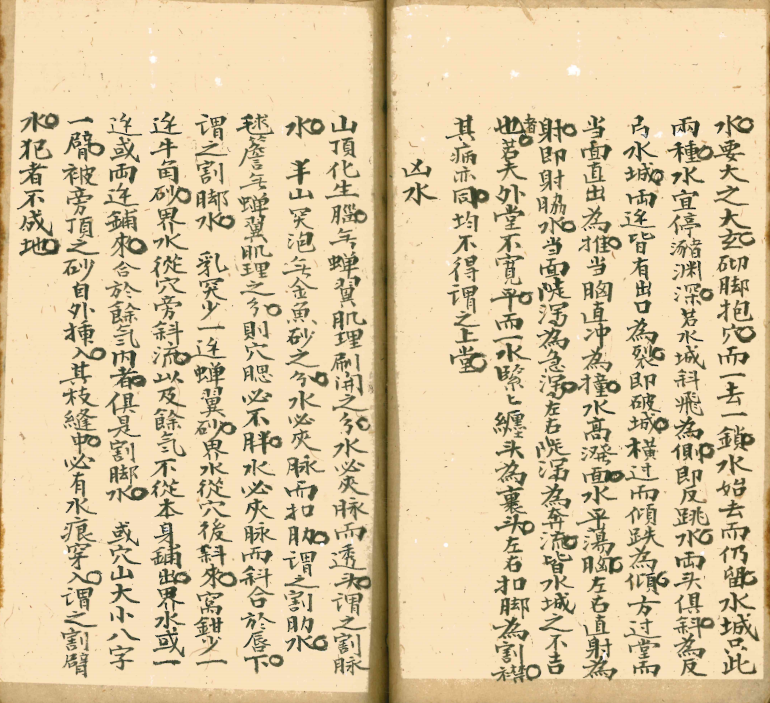 水要天之大玄砌脚抱穴而一去一鎖水始去而仍留水城只此
兩種水宜停瀦渊深若水城斜飛為側即反跳水両头俱斜為反
弓水城両边皆有出口為裂即破城橫过而傾跌為傾方过堂而
当面直出為推当胸直冲為撞水高濼面水平蕩胸左右直射為
射即射脇水当面陡瀉為急瀉左右陡瀉為奔流皆水城之不吉
者也若夫外堂不寬平而一水緊匕纏头為裹头左右扣脚為割襟
其病亦同均不得謂之上堂
凶水
山頂化生腦無蝉翼肌理刷開之分水必夾脉而透头謂之割脉
水 羊山突泡無金魚砂之分水必夾脉而扣肋謂之割肋水
毬簷無蝉翼肌理之分則穴腮必不胖水必夾脉而斜合於唇下
謂之割脚水 乳突少一边蝉翼砂界水從穴後斜來窩鉗少一
边牛角砂界水從穴旁斜流以及餘氣不從本身鋪出界水或一
边或両边鋪來合於餘氣內者俱是割脚水 或穴山大小八字
一臂被旁頂之砂自外插入其枝縫中必有水痕穿入謂之割臂
水犯者不成地